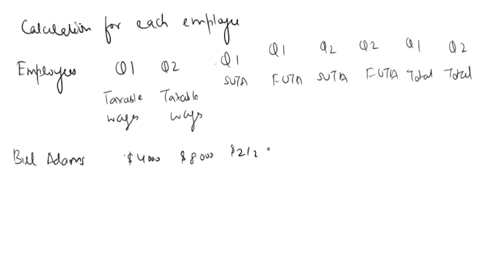 Calculation for each employee
Employees Q1 Q2 Q1 Q1 Q2 Q2 Q1 Q2
Taxable wages Taxable wages SUTA FUTA SUTA FUTA Total Total
Bill Adams $4000 $8000 $212